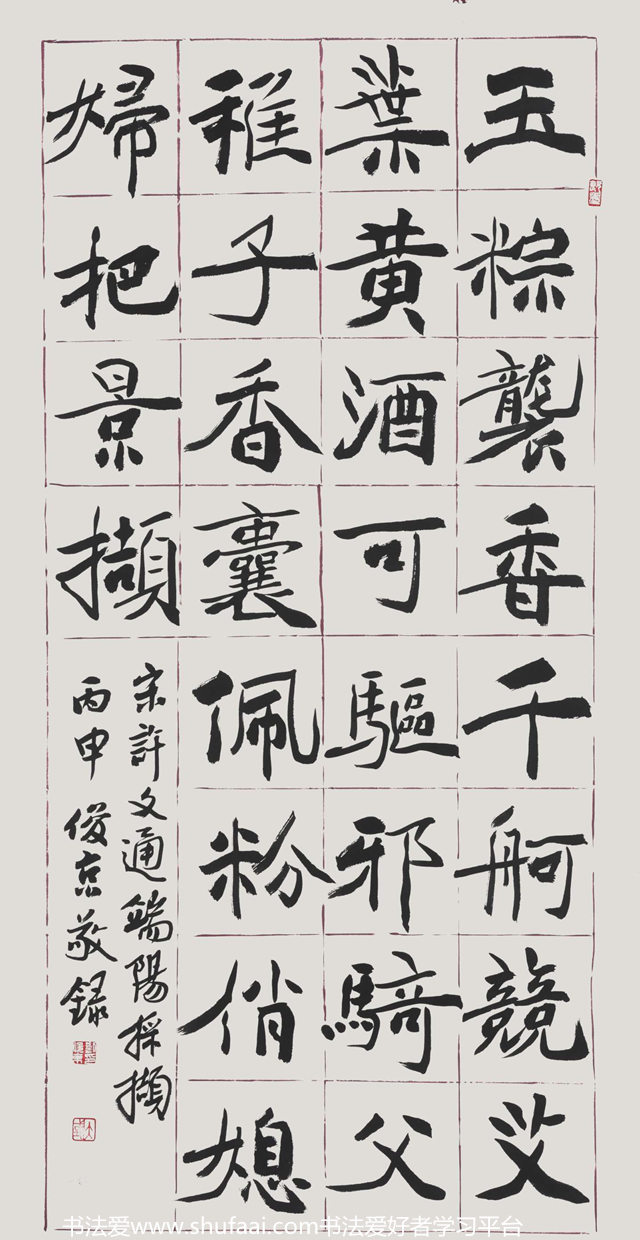 玉粽龔香千舸競艾
葉黄酒可驅邪騎父
稚子香囊佩粉俏媳
婦把景擷
宋許文通端陽採擷
丙申俊京敬録
书法爱www.shufaai.com书法爱好者学习平台